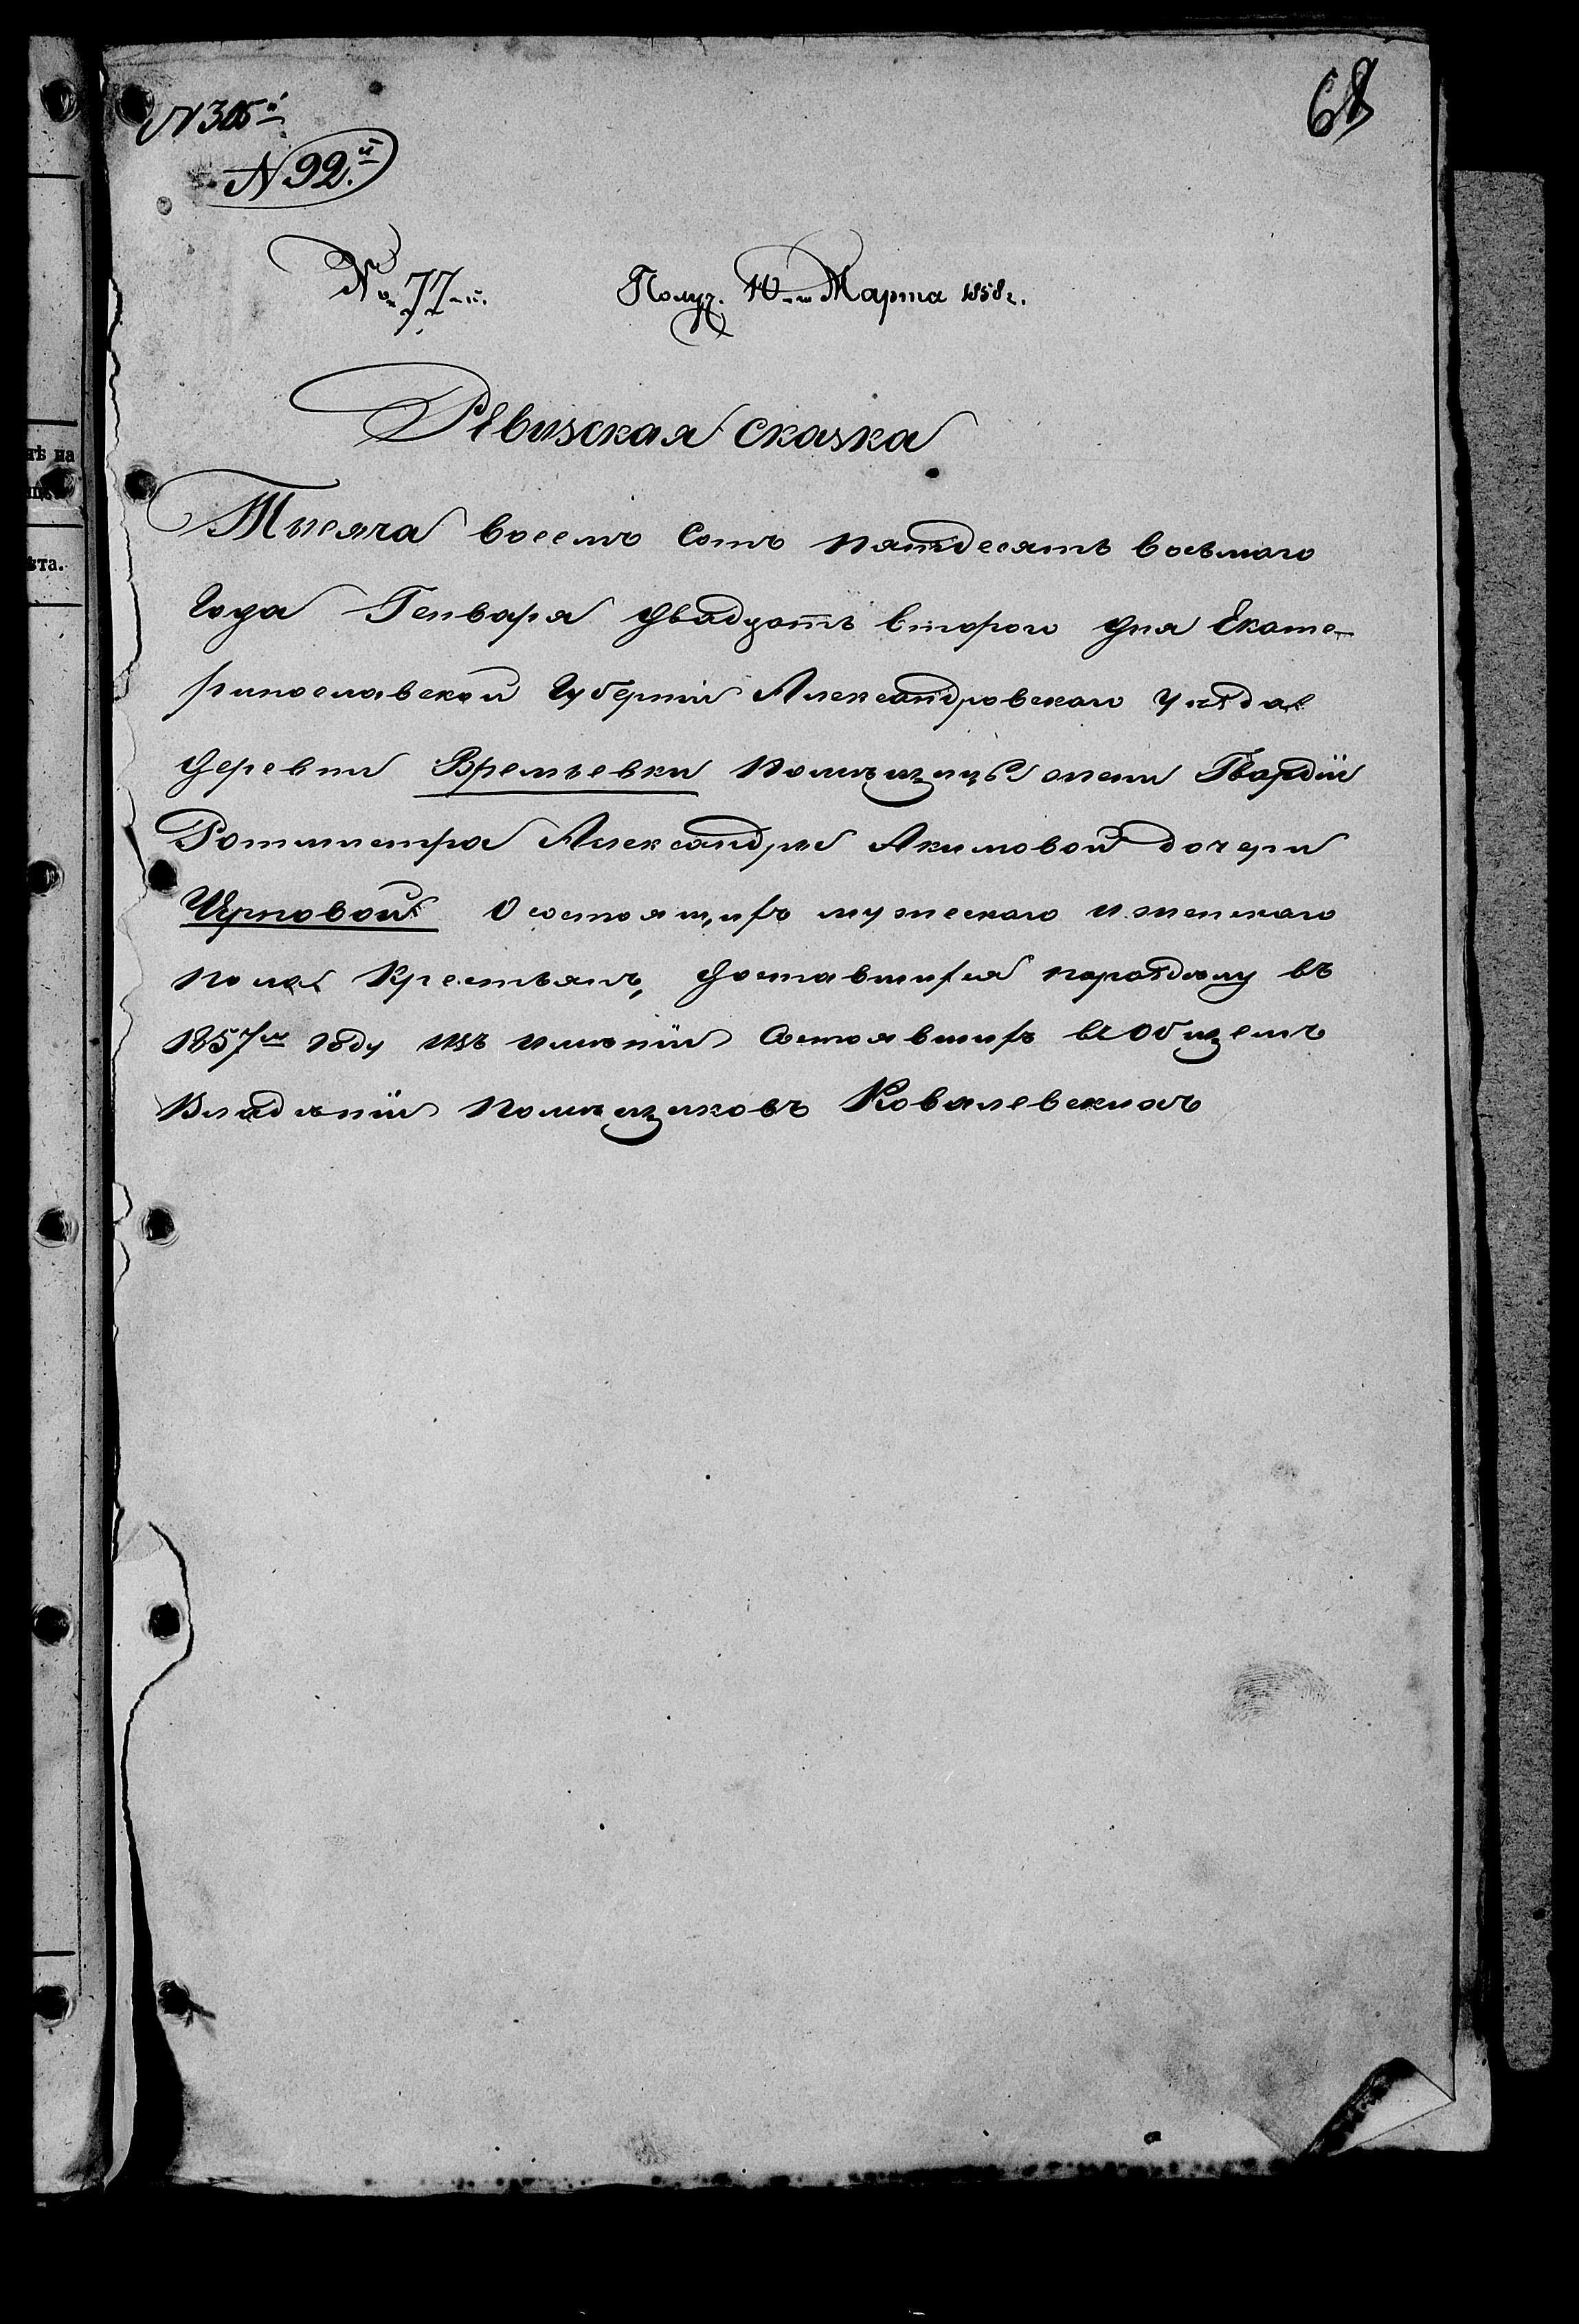 68
N 92.й
№ 77-й.
Получ. 10-го Марта 1858 г.
Ревизская сказка
Тысяча восемъ сотъ пятдесятъ восьмого
Года Генваря двадцать второго дня Екате-
ринославской Губерніи Александровскаго уѣзда
деревни Времьевки помѣщицы жены Гвардіи
Ротмистра Александры Акимовой дочери
О состоящихъ мужескаго и женскаго
пола Крестьянъ, доставшихся по раздѣлу въ
1857м году изъ имѣнія Состоявшихъ въ Общемъ
Владѣніи помѣщиковъ Ковалевскихъ
ѣта.